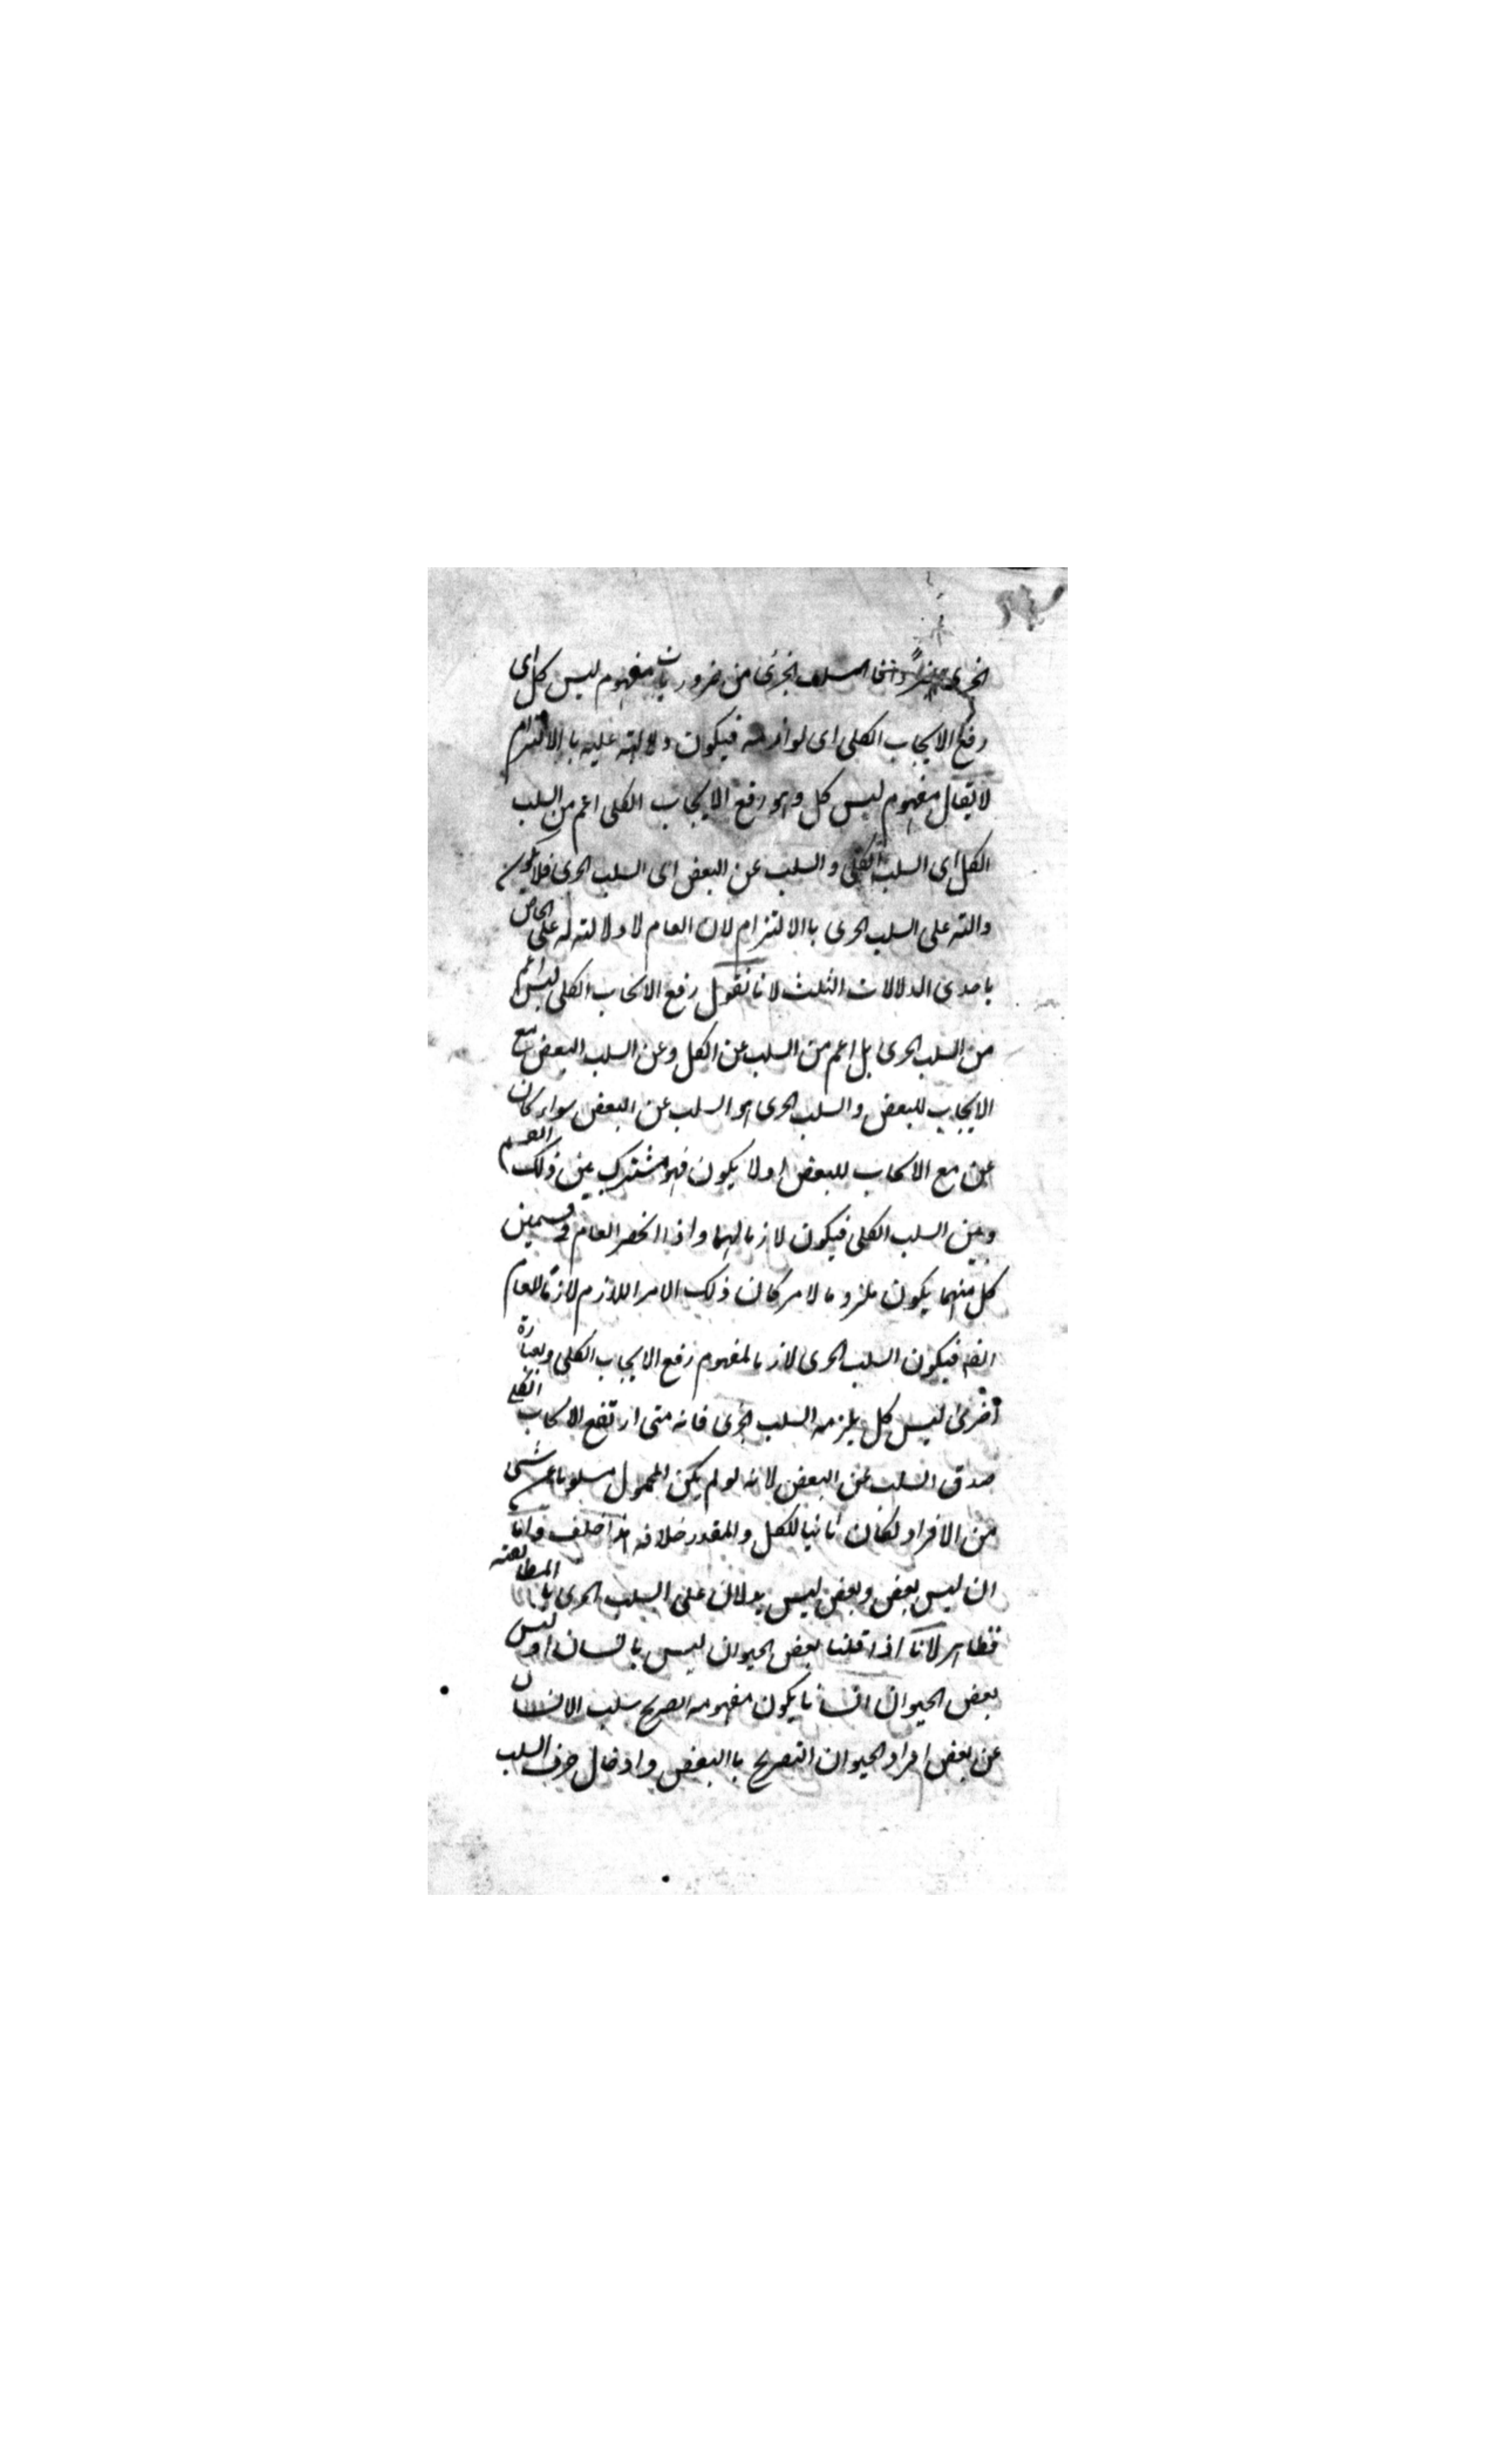 الجزئى جزءً السلب الجزئى من ضروريات مفهوم ليس كل اى
رفع الايجاب الكلى اى لوازمه فيكون دلالته عليه با الالتزام
لا يقال مفهوم ليس كل وهو رفع الايجاب الكلى اعم من السلب
الكل اى السلب الكلى والسلب عن البعض اى السلب الجزى فلا يكون
دالته على السلب الجزى با الالتزام لان العام لا دلالته له على الخاص
باحدى الدلالات الثلث لانا نقول رفع الايجاب الكلى ليس اعم
من السلب الجزئ بل اعم من السلب عن الكل وعن السلب البعض مع
الايجاب للبعض والسلب الجزى هو السلب عن البعض سواء كان
عن مع الايجاب للبعض او لا يكون فهو مشترك بين ذلك القسم
وبين السلب الكلى فيكون لازما لهما واذا انحصر العام فى قسمين
كل منهما يكون ملزوما لامر كان ذلك الامر اللازم لازمًا للعام
ايضه فيكون السلب الجزى لازما لمفهوم رفع الايجاب الكلى وبعبارة
اخرى ليس كل يلزمه السلب الجزى فانه متى ارتفع الايجاب الكلى
صدق السلب عن البعض لانه لو لم يكن المحمول مسلوبا عن شئ
من الافراد لكان ثابتا للكل والمقدر خلافه هذا خلف واما
ان ليس بعض وبعض ليس يدلان على السلب الجزى با المطابقته
فظاهر لانا اذا قلنا بعض الحيوان ليس بانسان او ليس
بعض الحيوان انسانا يكون مفهومه الصريح سلب الانسان
عن بعض افراد الحيوان التصريح با البعض وادخال حرف السلب